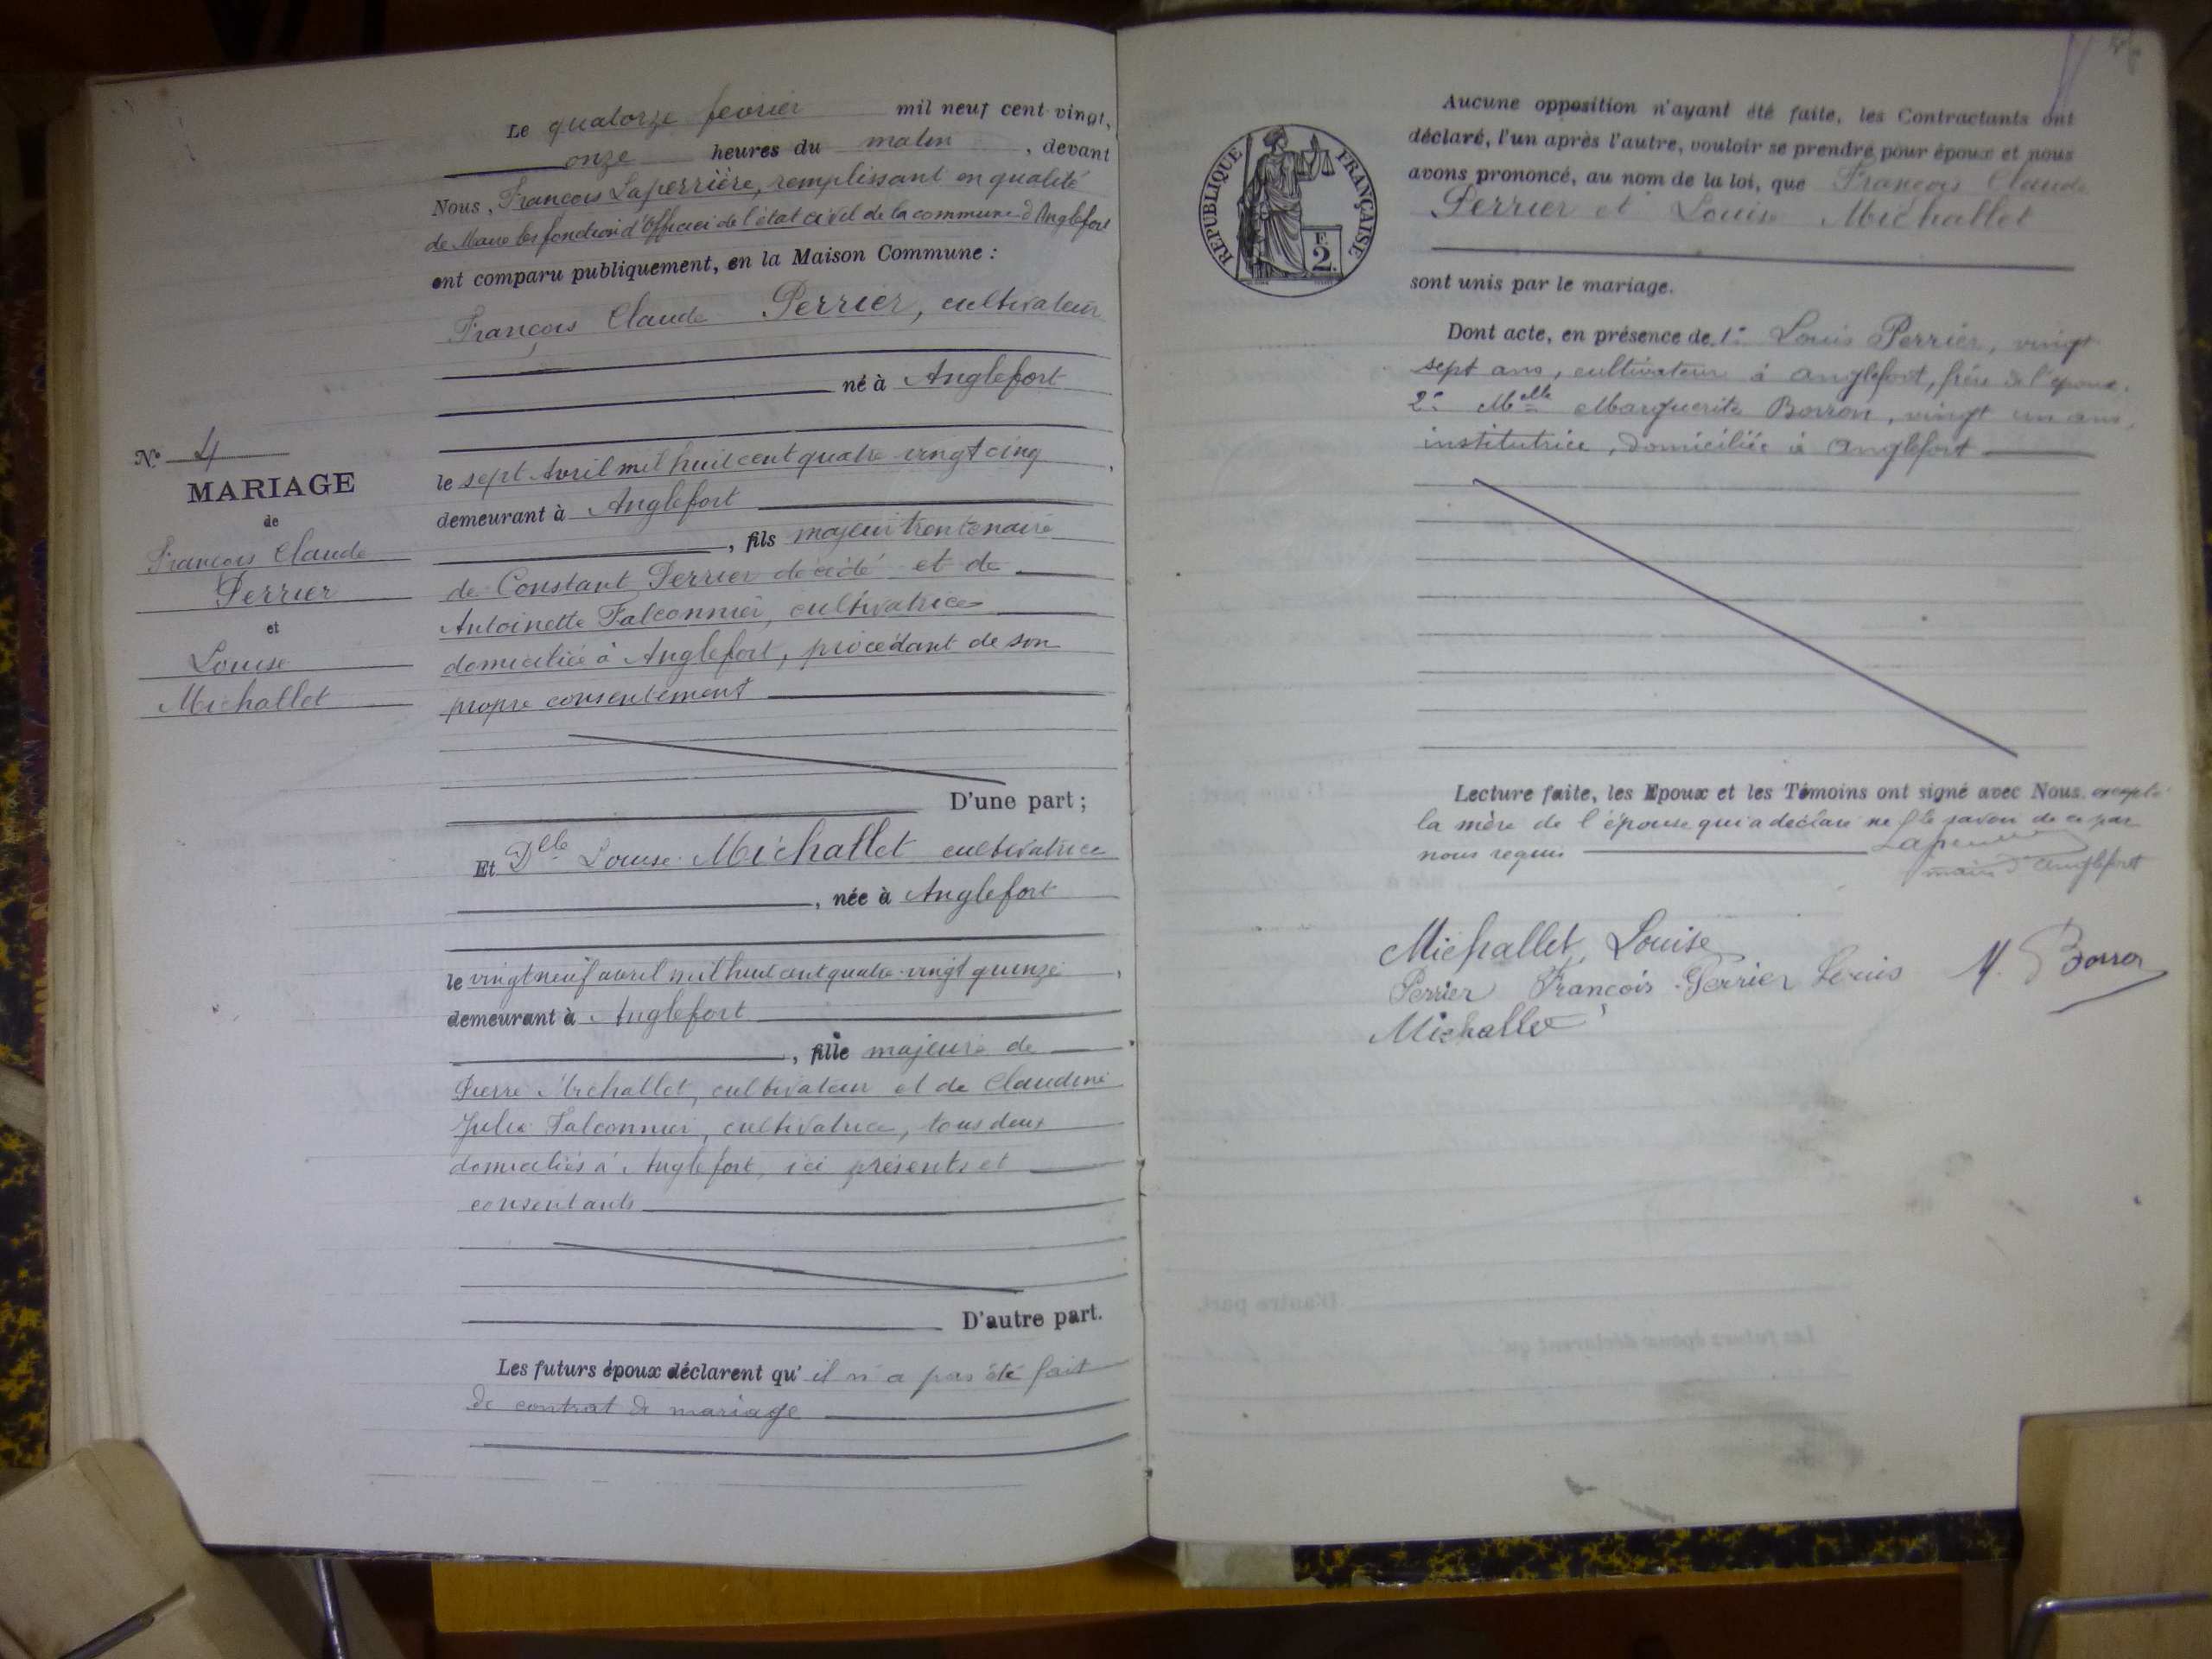 Le quatorze fevrier mil neuf cent vingt,
onze heures du matin, devant
Nous, François Laperrière, remplissant en qualité
de Maire les fonctions d'Officier de l'état civil de la commune d'Anglefort
ont comparu publiquement, en la Maison Commune :
François Claude Perrier, cultivateur
né à Anglefort
le sept Avril mil huit cent quatre-vingt cinq,
demeurant à Anglefort
, fils majeur trentenaire
de Constant Perrier décédé et de
Antoinette Falconnier, cultivatrice
domiciliée à Anglefort, procédant de son
propre consentement
D'une part ;
Et Dlle Louise Michallet cultivatrice
, née à Anglefort
le vingt neuf avril mil huit cent quatre-vingt quinze,
demeurant à Anglefort
, fille majeure de
Pierre Michallet, cultivateur et de Claudine
Julie Falconnier, cultivatrice, tous deux
domiciliés à Anglefort, ici présents et
consentants
D'autre part.
Les futurs époux déclarent qu'il n'a pas été fait
de contrat de mariage
N° 4
MARIAGE
de
François Claude
Perrier
et
Louise
Michallet
RÉPUBLIQUE FRANÇAISE
F.
2.
Aucune opposition n'ayant été faite, les Contractants ont
déclaré, l'un après l'autre, vouloir se prendre pour époux et nous
avons prononcé, au nom de la loi, que François Claude
Perrier et Louise Michallet
sont unis par le mariage.
Dont acte, en présence de 1° Louis Perrier, vingt
sept ans, cultivateur à Anglefort, frère de l'époux.
2° Melle Marguerite Borron, vingt un ans,
institutrice, domiciliée à Anglefort
Lecture faite, les Epoux et les Témoins ont signé avec Nous. excepté
la mère de l'épouse qui a déclaré ne le savoir de ce par
nous requis
maire d'Anglefort
Michallet Louise
Perrier François Perrier Louis M. Borron
Michallet